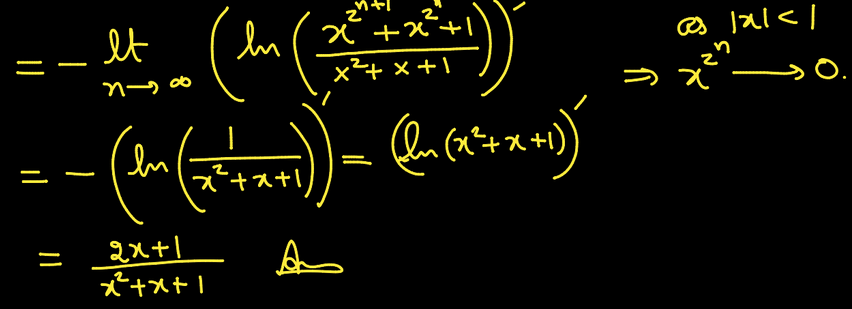 = - lt n→∞ (ln((x^{2^{n+1}} + x^{2^n} + 1)/(x² + x + 1)))′ as |x| < 1
⇒ x^{2^n} ⟶ 0.
= - (ln(1/(x² + x + 1)))′ = (ln(x² + x + 1))′
= (2x + 1)/(x² + x + 1) Ans